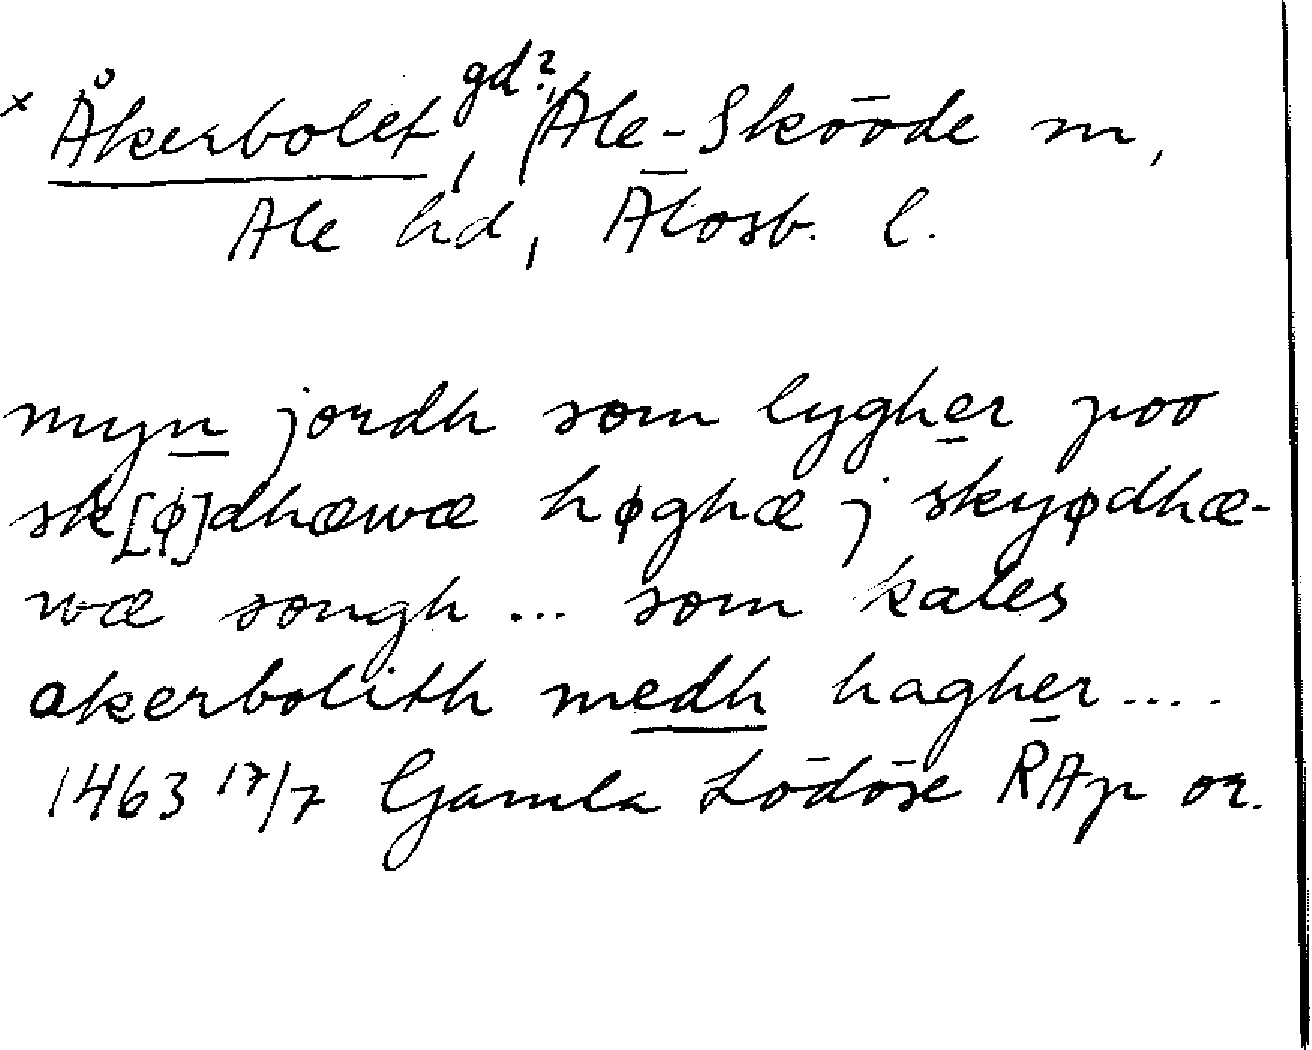 × Åkerbolet, gd?, Ale-Skövde sn,
Ale hd, Älvsb. l.
myn jordh som lygher poo
sk[ø]dhæwæ høghæ j skyødhæ-
wæ songh ... som kales
akerbolith medh hagher ....
1463 17/7 Gamla Lödöse RAp or.